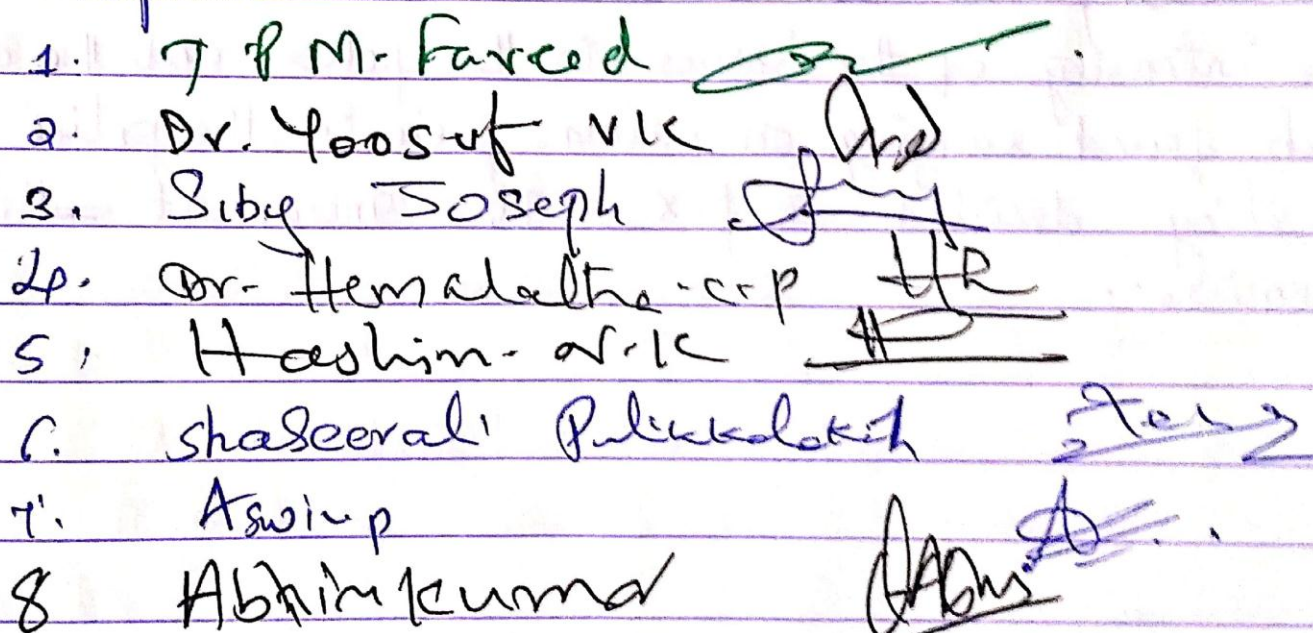 1. T P M. Fareed
2. Dr. Yoosuf VK
3. Siby Joseph
4. Dr. Hemalaltha.c.p HR
5. Hashim. N.K
6. Shaseerali Pulikkalakath
7. Aswin p
8 Abhinkumar